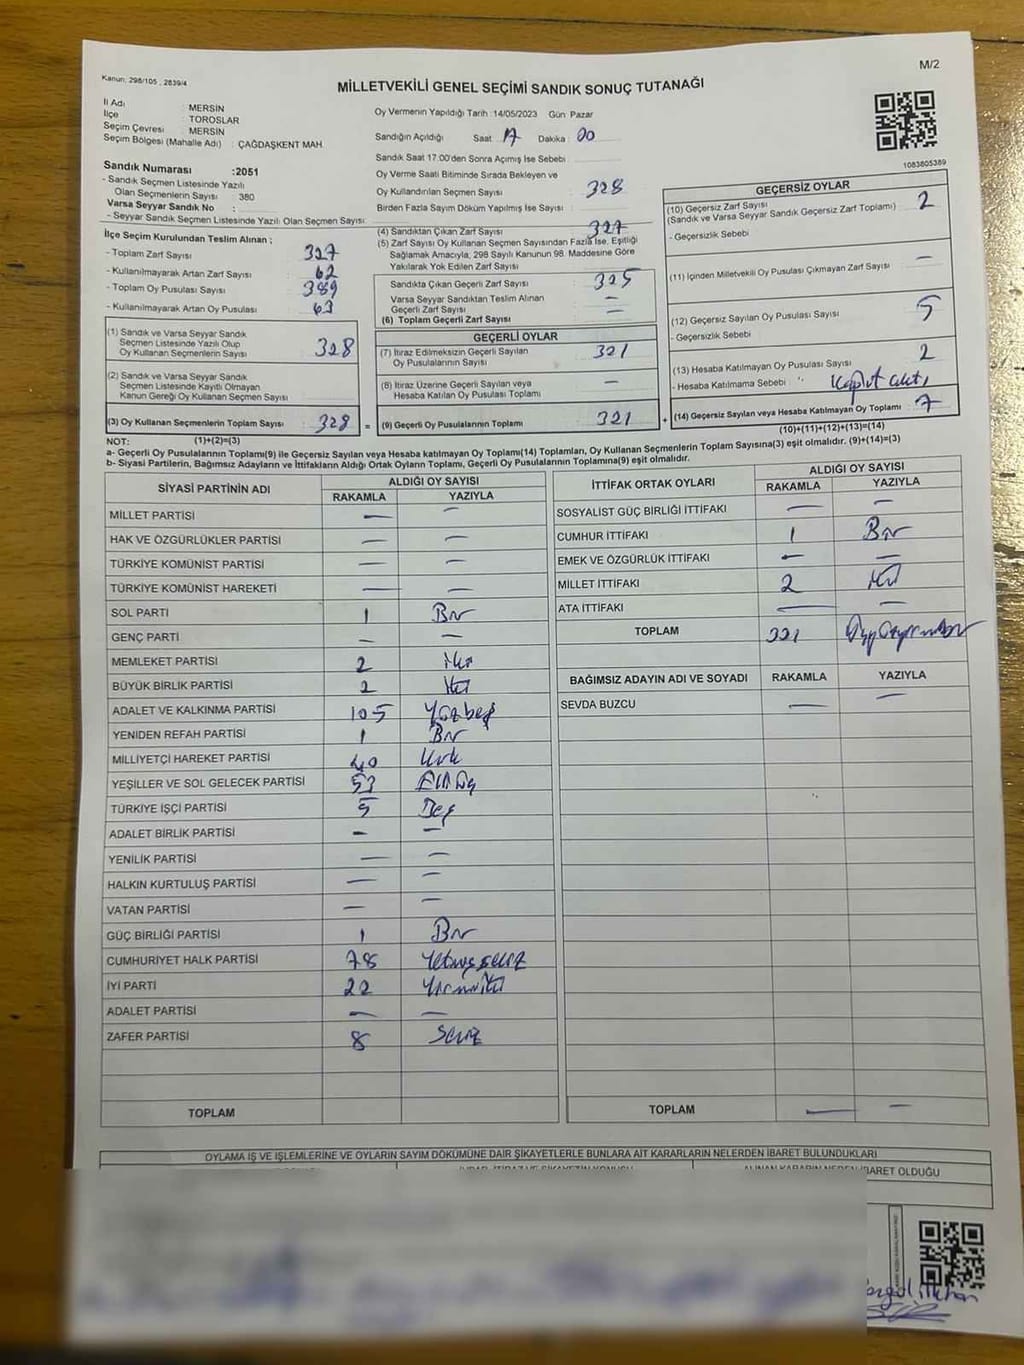 Kanun; 298/105 , 2839/4
M/2
MİLLETVEKİLİ GENEL SEÇİMİ SANDIK SONUÇ TUTANAĞI
İl Adı : MERSİN
İlçe : TOROSLAR
Seçim Çevresi : MERSİN
Seçim Bölgesi (Mahalle Adı) : ÇAĞDAŞKENT MAH.
Oy Vermenin Yapıldığı Tarih :14/05/2023 Gün Pazar
Sandığın Açıldığı Saat 17 Dakika : 00
Sandık Saat 17.00'den Sonra Açımış İse Sebebi :
Oy Verme Saati Bitiminde Sırada Bekleyen ve
Oy Kullandırılan Seçmen Sayısı : 328
Birden Fazla Sayım Döküm Yapılmış İse Sayısı :
1083805389
Sandık Numarası :2051
- Sandık Seçmen Listesinde Yazılı
Olan Seçmenlerin Sayısı : 380
Varsa Seyyar Sandık No :
- Seyyar Sandık Seçmen Listesinde Yazılı Olan Seçmen Sayısı:
İlçe Seçim Kurulundan Teslim Alınan ;
- Toplam Zarf Sayısı : 327
- Kullanılmayarak Artan Zarf Sayısı : 62
- Toplam Oy Pusulası Sayısı : 389
- Kullanılmayarak Artan Oy Pusulası : 63
(1) Sandık ve Varsa Seyyar Sandık
Seçmen Listesinde Yazılı Olup
Oy Kullanan Seçmenlerin Sayısı : 328
(2) Sandık ve Varsa Seyyar Sandık
Seçmen Listesinde Kayıtlı Olmayan
Kanun Gereği Oy Kullanan Seçmen Sayısı :
(3) Oy Kullanan Seçmenlerin Toplam Sayısı : 328 =
(4) Sandıktan Çıkan Zarf Sayısı : 327
(5) Zarf Sayısı Oy Kullanan Seçmen Sayısından Fazla İse, Eşitliği
Sağlamak Amacıyla; 298 Sayılı Kanunun 98. Maddesine Göre
Yakılarak Yok Edilen Zarf Sayısı :
Sandıkta Çıkan Geçerli Zarf Sayısı : 325
Varsa Seyyar Sandıktan Teslim Alınan
Geçerli Zarf Sayısı : —
(6) Toplam Geçerli Zarf Sayısı : —
GEÇERLİ OYLAR
(7) İtiraz Edilmeksizin Geçerli Sayılan
Oy Pusulalarının Sayısı : 321
(8) İtiraz Üzerine Geçerli Sayılan veya
Hesaba Katılan Oy Pusulası Toplamı : —
(9) Geçerli Oy Pusulalarının Toplamı : 321 +
GEÇERSİZ OYLAR
(10) Geçersiz Zarf Sayısı : 2
(Sandık ve Varsa Seyyar Sandık Geçersiz Zarf Toplamı)
- Geçersizlik Sebebi
(11) İçinden Milletvekili Oy Pusulası Çıkmayan Zarf Sayısı : —
(12) Geçersiz Sayılan Oy Pusulası Sayısı : 5
- Geçersizlik Sebebi :
(13) Hesaba Katılmayan Oy Pusulası Sayısı : 2
- Hesaba Katılmama Sebebi :
(14) Geçersiz Sayılan veya Hesaba Katılmayan Oy Toplamı : 7
(10)+(11)+(12)+(13)=(14)
NOT: (1)+(2)=(3)
a- Geçerli Oy Pusulalarının Toplamı(9) ile Geçersiz Sayılan veya Hesaba katılmayan Oy Toplamı(14) Toplamları, Oy Kullanan Seçmenlerin Toplam Sayısına(3) eşit olmalıdır. (9)+(14)=(3)
b- Siyasi Partilerin, Bağımsız Adayların ve İttifakların Aldığı Ortak Oyların Toplamı, Geçerli Oy Pusulalarının Toplamına(9) eşit olmalıdır.
SİYASİ PARTİNİN ADI ALDIĞI OY SAYISI
RAKAMLA YAZIYLA
MİLLET PARTİSİ — —
HAK VE ÖZGÜRLÜKLER PARTİSİ — —
TÜRKİYE KOMÜNİST PARTİSİ — —
TÜRKİYE KOMÜNİST HAREKETİ — —
SOL PARTİ 1 Bir
GENÇ PARTİ — —
MEMLEKET PARTİSİ 2 iki
BÜYÜK BİRLİK PARTİSİ 2 iki
ADALET VE KALKINMA PARTİSİ 105 Yüzbeş
YENİDEN REFAH PARTİSİ 1 Bir
MİLLİYETÇİ HAREKET PARTİSİ 40 Kırk
YEŞİLLER VE SOL GELECEK PARTİSİ 53 Elliüç
TÜRKİYE İŞÇİ PARTİSİ 5 Beş
ADALET BİRLİK PARTİSİ — —
YENİLİK PARTİSİ — —
HALKIN KURTULUŞ PARTİSİ — —
VATAN PARTİSİ — —
GÜÇ BİRLİĞİ PARTİSİ 1 Bir
CUMHURİYET HALK PARTİSİ 78 Yetmişsekiz
İYİ PARTİ 22 Yirmiiki
ADALET PARTİSİ — —
ZAFER PARTİSİ 8 Sekiz
TOPLAM
İTTİFAK ORTAK OYLARI ALDIĞI OY SAYISI
RAKAMLA YAZIYLA
SOSYALİST GÜÇ BİRLİĞİ İTTİFAKI — —
CUMHUR İTTİFAKI 1 Bir
EMEK VE ÖZGÜRLÜK İTTİFAKI — —
MİLLET İTTİFAKI 2 iki
ATA İTTİFAKI — —
TOPLAM 321
BAĞIMSIZ ADAYIN ADI VE SOYADI RAKAMLA YAZIYLA
SEVDA BUZCU — —
TOPLAM — —
OYLAMA İŞ VE İŞLEMLERİNE VE OYLARIN SAYIM DÖKÜMÜNE DAİR ŞİKAYETLERLE BUNLARA AİT KARARLARIN NELERDEN İBARET BULUNDUKLARI
ALINAN KARARIN NEDEN İBARET OLDUĞU